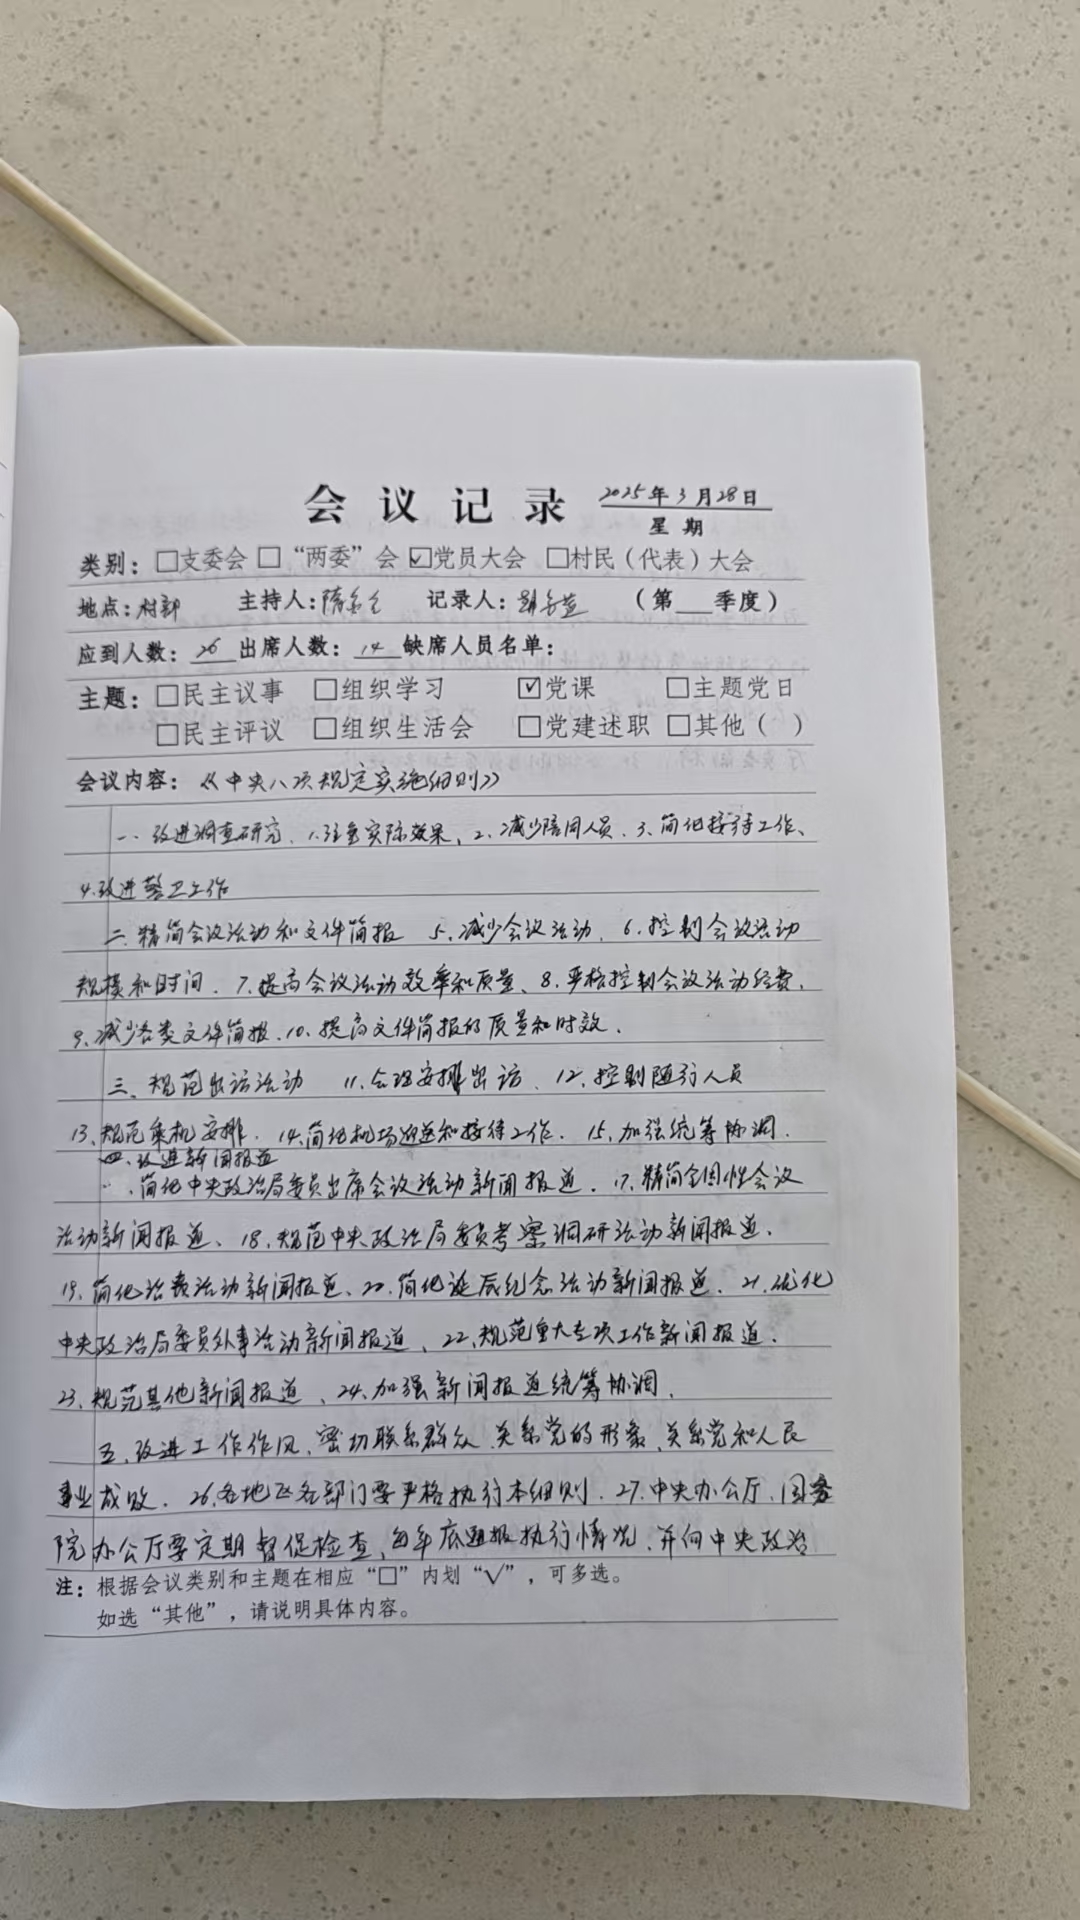 会议记录 2025年3月28日
星期
类别：□支委会 □“两委”会 ☑党员大会 □村民（代表）大会
地点：村部 主持人：隋 记录人： （第 季度）
应到人数：26 出席人数：14 缺席人员名单：
主题：□民主议事 □组织学习 ☑党课 □主题党日
□民主评议 □组织生活会 □党建述职 □其他（ ）
会议内容：《中央八项规定实施细则》
一、改进调查研究、1.注重实际效果、2.减少陪同人员、3.简化接待工作、
4.改进警卫工作
二、精简会议活动和文件简报 5.减少会议活动、6.控制会议活动
规模和时间、7.提高会议活动效率和质量、8.严格控制会议活动经费、
9.减少各类文件简报、10.提高文件简报的质量和时效、
三、规范出访活动 11.合理安排出访、12.控制随行人员
13.规范乘机安排、14.简化机场迎送和接待工作、15.加强统筹协调、
四、改进新闻报道
简化中央政治局委员出席会议活动新闻报道、17.精简全国性会议
活动新闻报道、18.规范中央政治局委员考察调研活动新闻报道、
19.简化治丧活动新闻报道、20.简化诞辰纪念活动新闻报道、21.优化
中央政治局委员外事活动新闻报道、22.规范重大专项工作新闻报道、
23.规范其他新闻报道、24.加强新闻报道统筹协调、
五、改进工作作风、密切联系群众、关系党的形象、关系党和人民
事业成败、26.各地区各部门要严格执行本细则、27.中央办公厅、国务
院办公厅要定期督促检查、每年底通报执行情况、并向中央政治
注：根据会议类别和主题在相应“□”内划“√”，可多选。
如选“其他”，请说明具体内容。